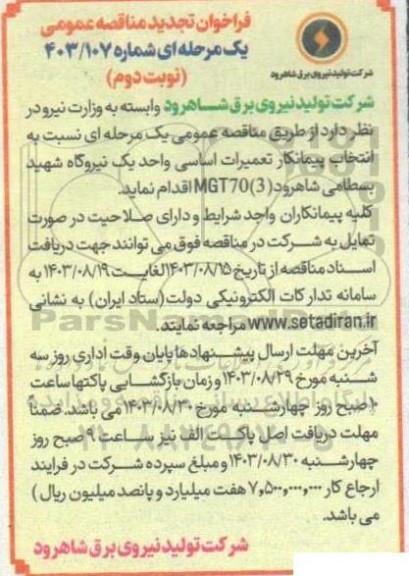 فراخوان تجدید مناقصه عمومی
یک مرحله ای شماره ۴۰۳/۱۰۷
(نوبت دوم)
شرکت تولید نیروی برق شاهرود
شرکت تولید نیروی برق شاهرود وابسته به وزارت نیرو در
نظر دارد از طریق مناقصه عمومی یک مرحله ای نسبت به
انتخاب پیمانکار تعمیرات اساسی واحد یک نیروگاه شهید
بسطامی شاهرود MGT70(3) اقدام نماید.
کلیه پیمانکاران واجد شرایط و دارای صلاحیت در صورت
تمایل به شرکت در مناقصه فوق می توانند جهت دریافت
اسناد مناقصه از تاریخ ۱۴۰۳/۰۸/۱۵ لغایت ۱۴۰۳/۰۸/۱۹ به
سامانه تدارکات الکترونیکی دولت (ستاد ایران) به نشانی
www.setadiran.ir مراجعه نمایند.
آخرین مهلت ارسال پیشنهادها پایان وقت اداری روز سه
شنبه مورخ ۱۴۰۳/۰۸/۲۹ و زمان بازگشایی پاکتها ساعت
۱۰ صبح روز چهارشنبه مورخ ۱۴۰۳/۰۸/۳۰ می باشد. ضمناً
مهلت دریافت اصل پاکت الف نیز ساعت ۹ صبح روز
چهارشنبه ۱۴۰۳/۰۸/۳۰ و مبلغ سپرده شرکت در فرایند
ارجاع کار ۷,۵۰۰,۰۰۰,۰۰۰ هفت میلیارد و پانصد میلیون ریال)
می باشد.
شرکت تولید نیروی برق شاهرود